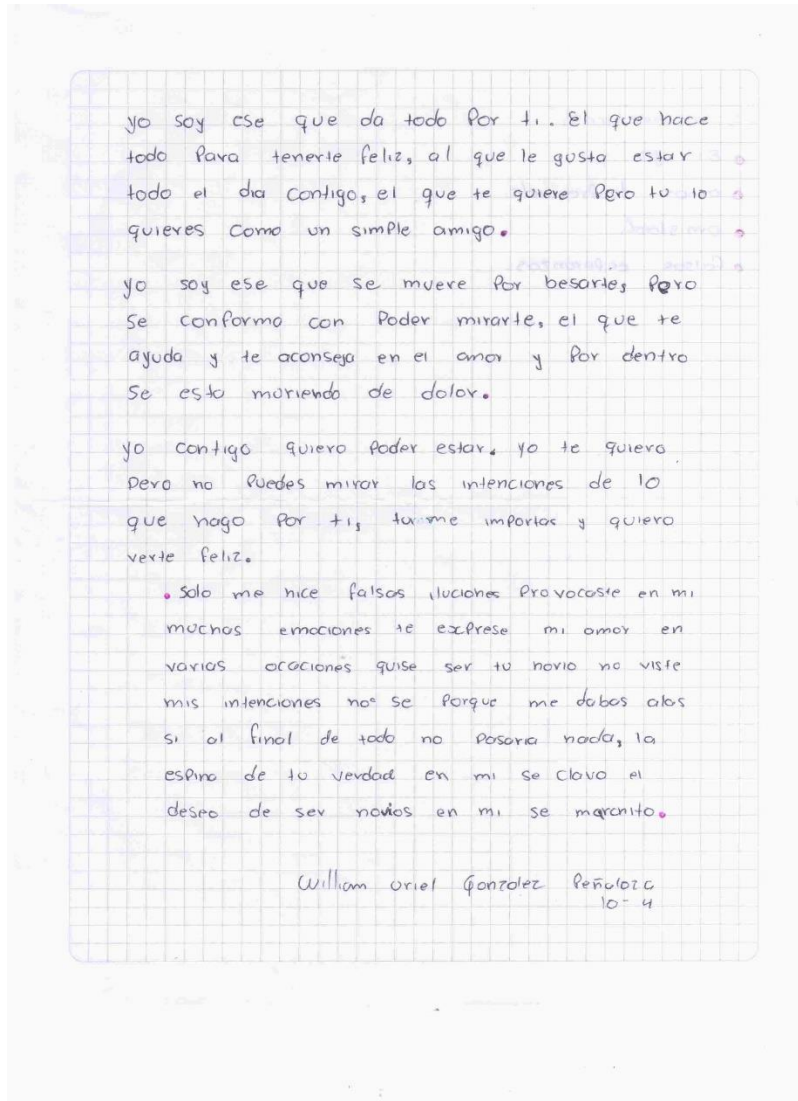 yo soy ese que da todo Por ti.. El que hace
todo Para tenerte feliz, al que le gusta estar
todo el dia contigo, el que te quiere Pero tu lo
quieres como un simple amigo.
yo soy ese que se muere Por besarte, Pero
se conformo con Poder mirarte, el que te
ayuda y te aconseja en el amor y Por dentro
se esta muriendo de dolor.
yo contigo quiero Poder estar. yo te quiero
Pero no Puedes mirar las intenciones de lo
que hago Por ti, tu me importas y quiero
verte feliz.
• Solo me hice falsas iluciones Provocaste en mi
muchas emociones te exPrese mi amor en
varias ocaciones quise ser tu novio no viste
mis intenciones no se Porque me dabas alas
si al final de todo no Pasaria nada, la
esPina de tu verdad en mi se clavo el
deseo de ser novios en mi se marchito.
William Uriel Gonzalez Peñaloza
10-4